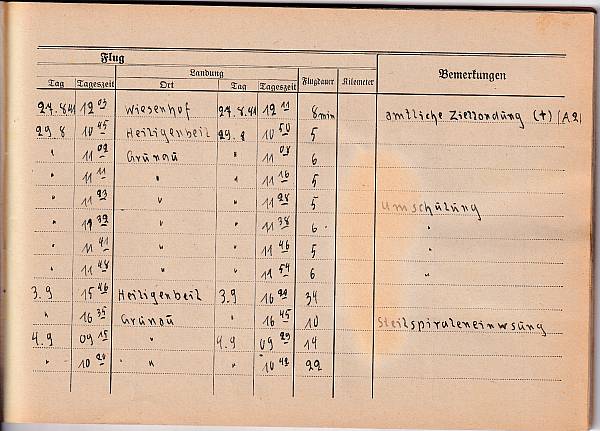 Flug
Landung
Tag Tageszeit Ort Tag Tageszeit Flugdauer Kilometer Bemerkungen
27.8.41 12 03 Wiesenhof 27.8.41 12 11 8 min amtliche Ziellandung (+) (A2)
29.8 10 45 Heiligenbeil 29.8 10 50 5
" 11 02 Grunau " 11 08 6
" 11 11 " " 11 16 5
" 11 23 " " 11 28 5 Umschulung
" 11 32 " " 11 38 6 "
" 11 41 " " 11 46 5 "
" 11 48 " " 11 54 6 "
3.9 15 46 Heiligenbeil 3.9 16 20 34
" 16 35 Grunau " 16 45 10 Steilspiraleneinwsung
4.9 09 15 " 4.9 09 29 14
" 10 20 " " 10 42 22